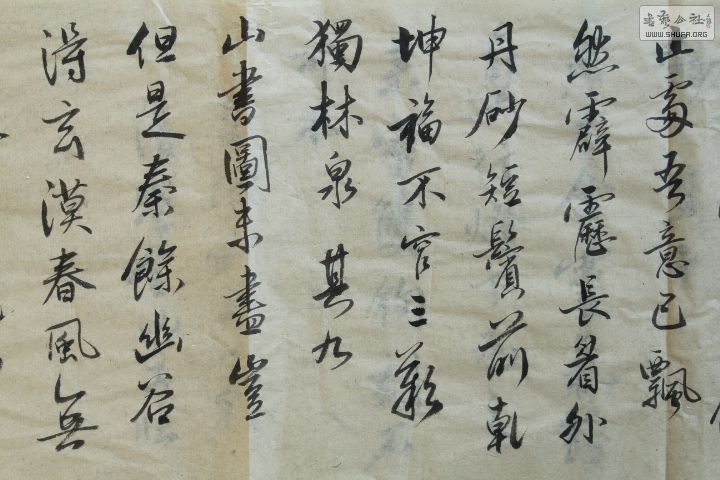 止處吾意已飄
然霹靂長著外
丹砂短鬢前乾
坤福不官三歎
獨林泉其九
山書圖未盡豈
但是秦餘幽谷
得玄漠春風無
書藝公社
WWW.SHUFA.ORG